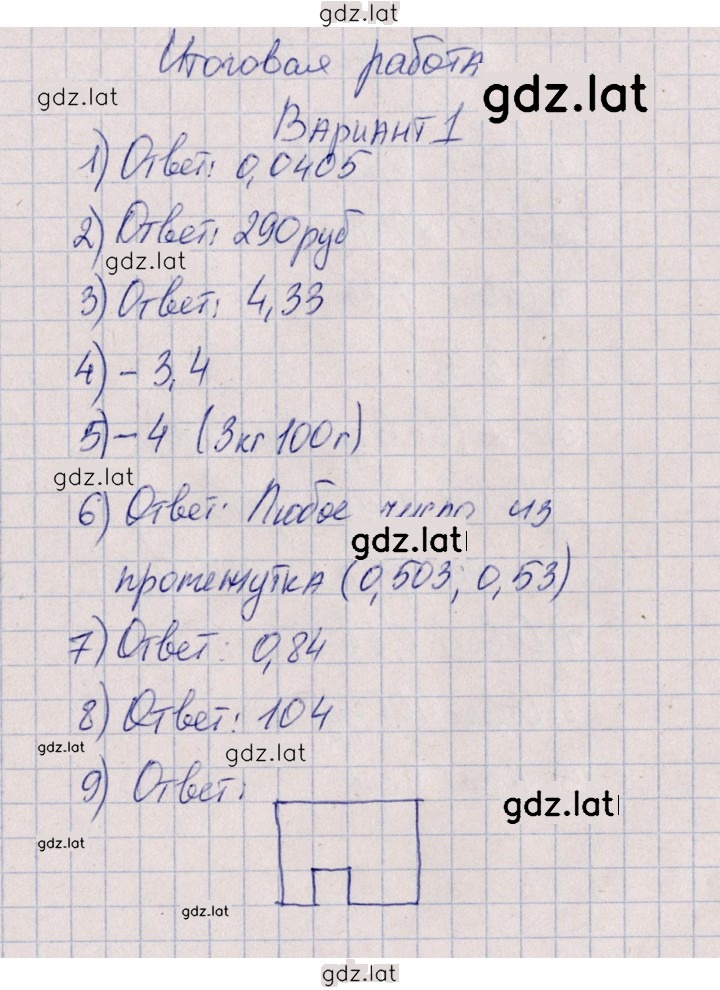 gdz.lat
Итоговая работа
gdz.lat
gdz.lat
Вариант 1
1) Ответ: 0,0405
2) Ответ: 290 руб
gdz.lat
3) Ответ: 4,33
4) – 3,4
5) – 4 (3кг 100г)
gdz.lat
6) Ответ: Любое число из
gdz.lat
промежутка (0,503; 0,53)
7) Ответ: 0,84
8) Ответ: 104
gdz.lat
gdz.lat
9) Ответ:
gdz.lat
gdz.lat
gdz.lat
gdz.lat